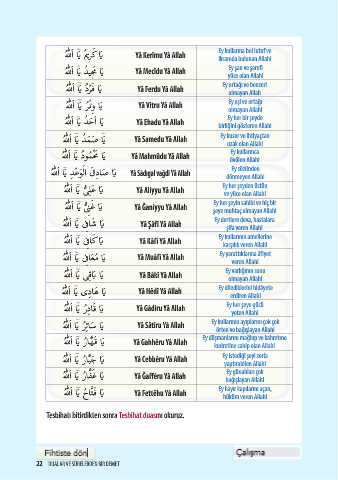 يَا كَرِيمُ يَا اَللّٰهُ Yâ Kerîmu Yâ Allah Ey kullarına bol lütuf ve
ihsanda bulunan Allah!
يَا مَجِيدُ يَا اَللّٰهُ Yâ Mecîdu Yâ Allah Ey şan ve şerefi
yüce olan Allah!
يَا فَرْدُ يَا اَللّٰهُ Yâ Ferdu Yâ Allah Ey ortağı ve benzeri
olmayan Allah!
يَا وِتْرُ يَا اَللّٰهُ Yâ Vitru Yâ Allah Ey eşi ve ortağı
olmayan Allah!
يَا اَحَدُ يَا اَللّٰهُ Yâ Ehadu Yâ Allah Ey her bir şeyde
birliğini gösteren Allah!
يَا صَمَدُ يَا اَللّٰهُ Yâ Samedu Yâ Allah Ey kusur ve ihtiyaçtan
uzak olan Allah!
يَا مَحْمُودُ يَا اَللّٰهُ Yâ Mahmûdu Yâ Allah Ey kullarınca
övülen Allah!
يَا صَادِقَ الْوَعْدِ يَا اَللّٰهُ Yâ Sâdıqal va'di Yâ Allah Ey sözünden
dönmeyen Allah!
يَا عَلِيُّ يَا اَللّٰهُ Yâ Aliyyu Yâ Allah Ey her şeyden üstün
ve yüce olan Allah!
يَا غَنِيُّ يَا اَللّٰهُ Yâ Ğaniyyu Yâ Allah Ey her şeyin sahibi ve hiç bir
şeye muhtaç olmayan Allah!
يَا شَافِي يَا اَللّٰهُ Yâ Şâfî Yâ Allah Ey dertlere deva, hastalara
şifa veren Allah!
يَا كَافِي يَا اَللّٰهُ Yâ Kâfî Yâ Allah Ey kullarının amellerine
karşılık veren Allah!
يَا مُعَافِي يَا اَللّٰهُ Yâ Muâfî Yâ Allah Ey yarattıklarına âfiyet
veren Allah!
يَا بَاقِي يَا اَللّٰهُ Yâ Bâkî Yâ Allah Ey varlığının sonu
olmayan Allah!
يَا هَادِي يَا اَللّٰهُ Yâ Hêdî Yâ Allah Ey dilediklerini hidâyete
erdiren Allah!
يَا قَادِرُ يَا اَللّٰهُ Yâ Gâdiru Yâ Allah Ey her şeye gücü
yeten Allah!
يَا سَاتِرُ يَا اَللّٰهُ Yâ Sâtiru Yâ Allah Ey kullarının ayıplarını çok çok
örten ve bağışlayan Allah!
يَا قَهَّارُ يَا اَللّٰهُ Yâ Gahhêru Yâ Allah Ey düşmanlarını mağlup ve kahretme
kudretine sahip olan Allah!
يَا جَبَّارُ يَا اَللّٰهُ Yâ Cebbêru Yâ Allah Ey istediği şeyi zorla
yaptırabilen Allah!
يَا غَفَّارُ يَا اَللّٰهُ Yâ Ğaffêru Yâ Allah Ey günahları çok
bağışlayan Allah!
يَا فَتَّاحُ يَا اَللّٰهُ Yâ Fettêhu Yâ Allah Ey hayır kapılarını açan,
hüküm veren Allah!
Tesbihatı bitirdikten sonra Tesbihat duasını okuruz.
Fihriste dön
Çalışma
22